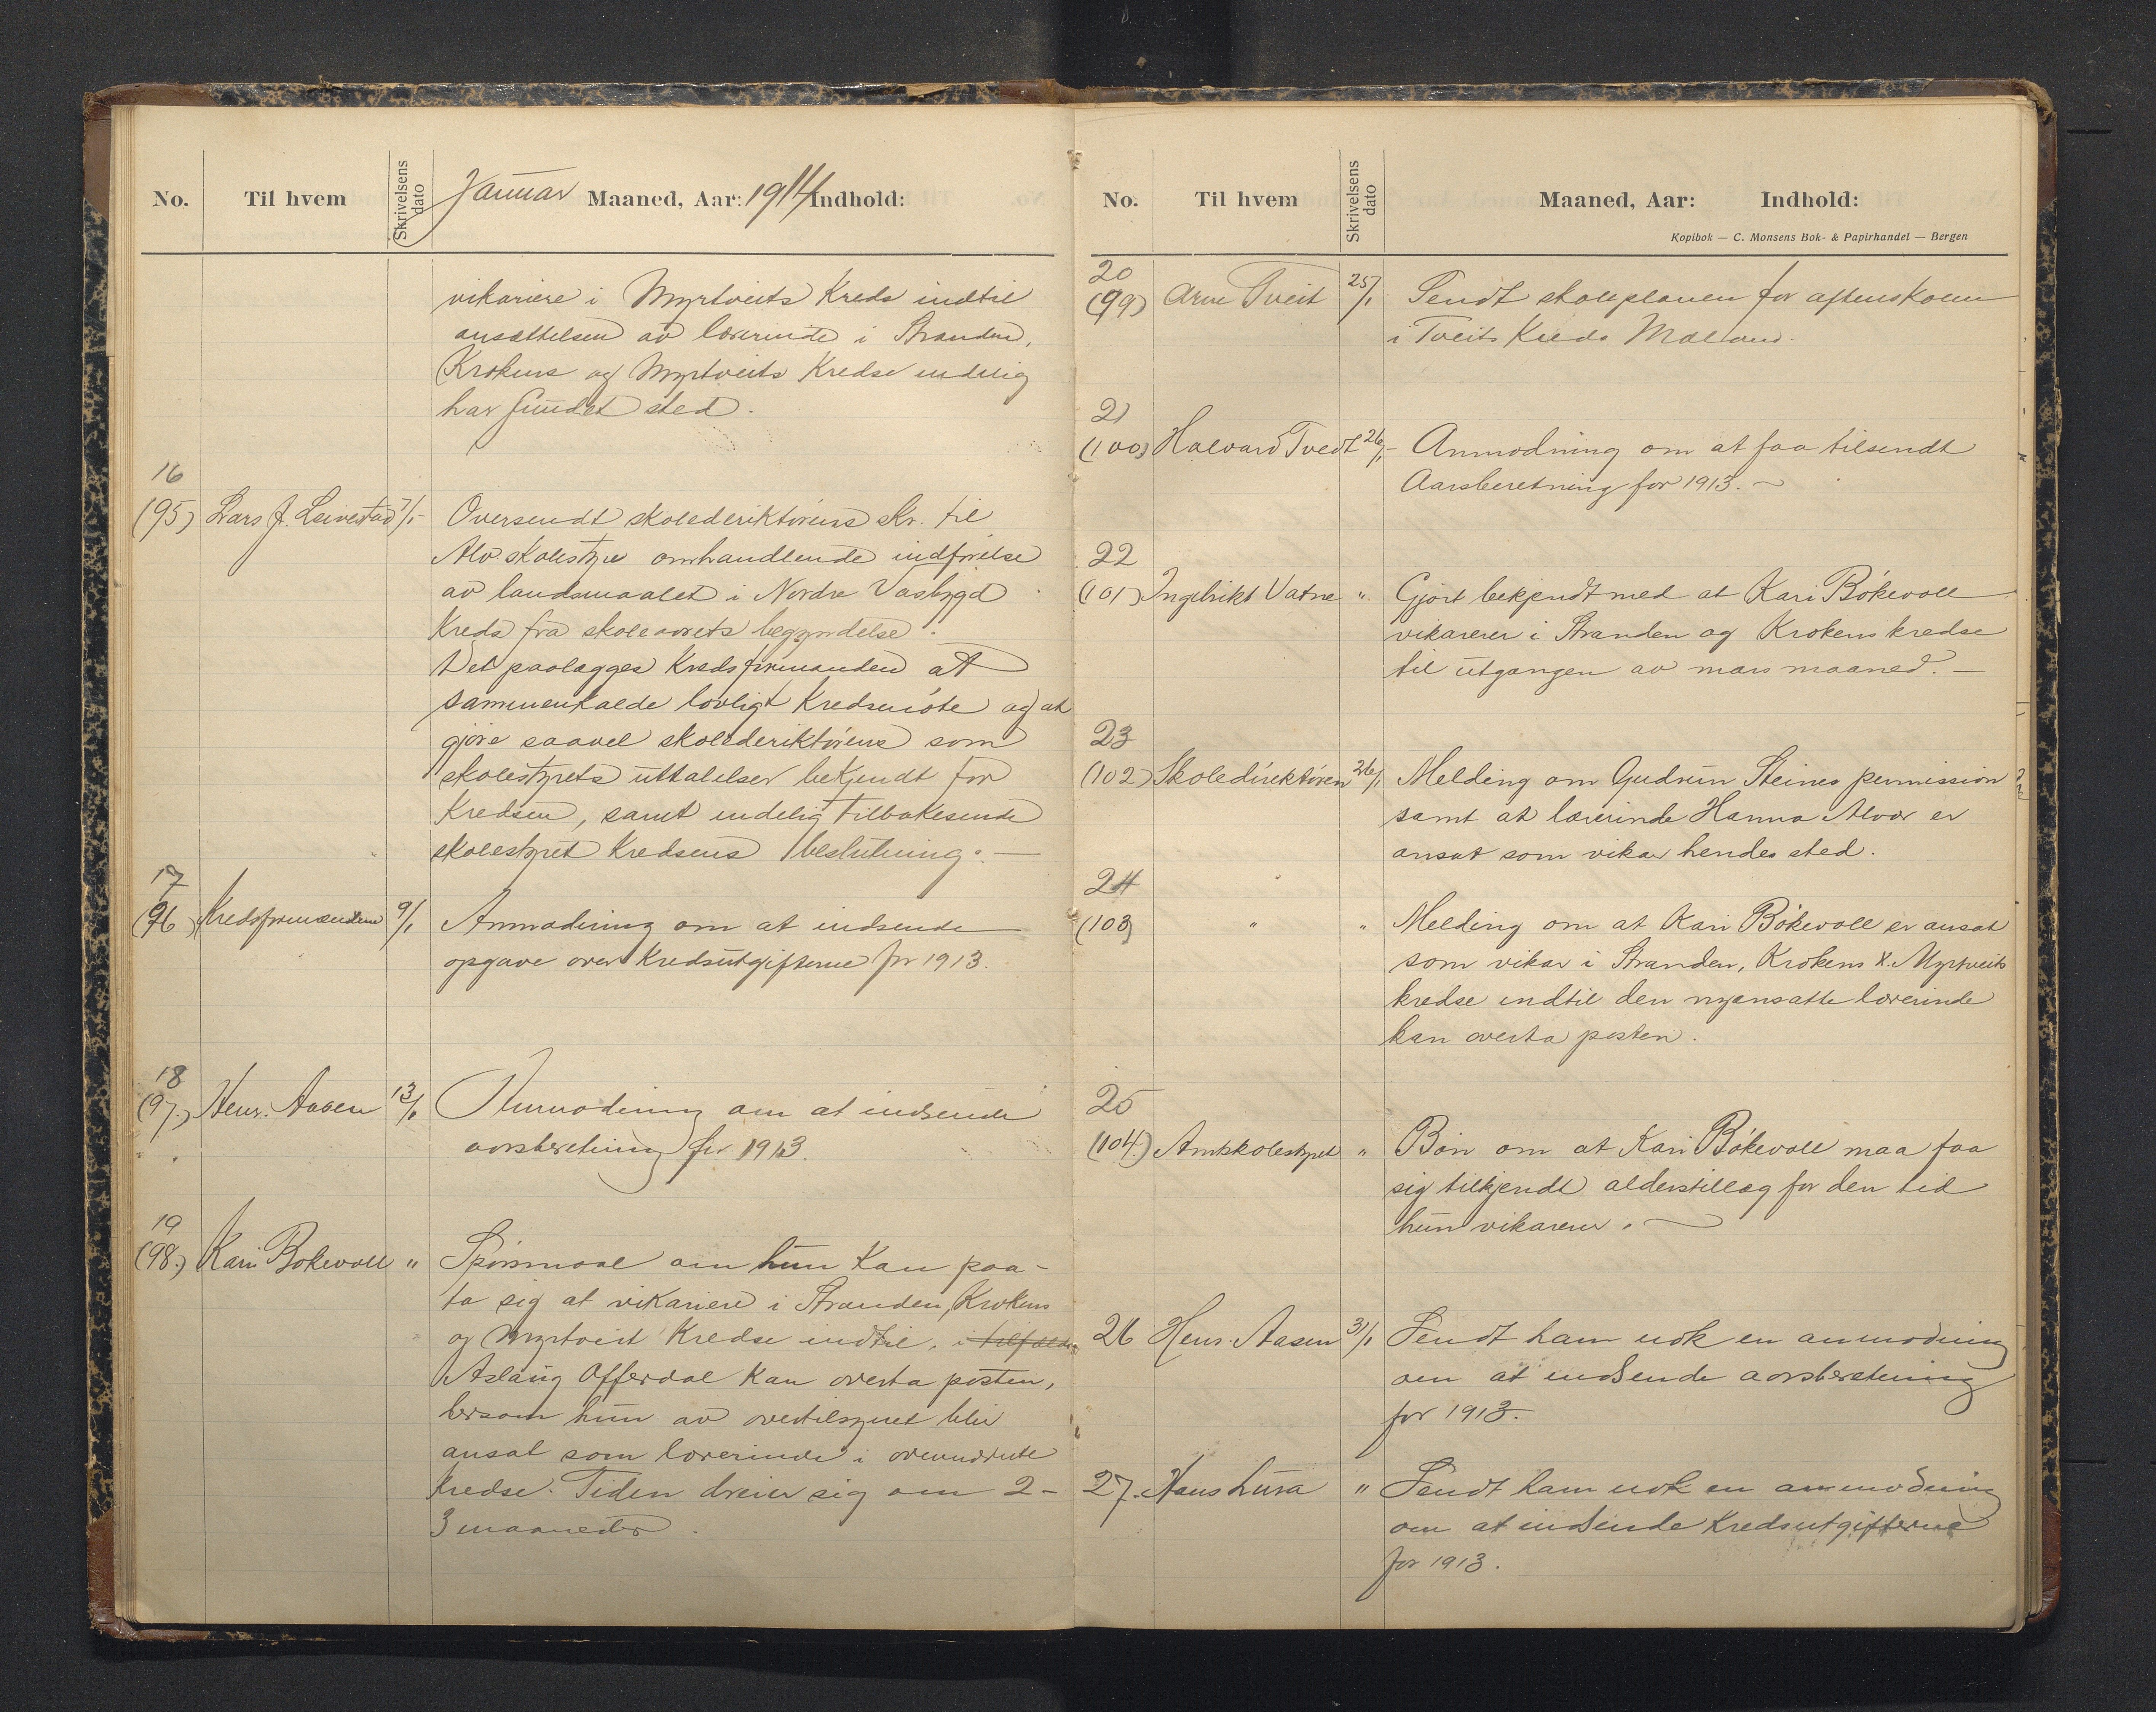 No. Til hvem Skrivelsens dato Januar Maaned, Aar: 1914 Indhold:
vikariere i Myrtveits Kreds indtil
ansættelsen av lærerinde i Stranden,
Krokens og Myrtveits Kredse endelig
har fundet sted.
16
(95) Lars J. Leivestad 7/1- Oversendt skolederiktørens skr. til
Alv. skolestyre omhandlende indførelse
av landsmaalet i Nordre Vasbygd
Kreds fra skoleaarets begyndelse.
Det paalægges Kredsformanden at
sammenkalde lovligt Kredsmöte og at
gjøre saavel skolederiktørens som
skolestyrets uttalelser bekjendt for
Kredsen, samt endelig tilbakesende
skolestyret Kredsens beslutning. —
17
(96) Kredsformændene 9/1 Anmodning om at indsende
opgave over Kredsutgifterne for 1913.
18
(97.) Henr. Aasen 13/1 Anmodning om at indsende
aarsberetning for 1913.
19
(98.) Kari Bökevoll " Spörsmaal om hun Kan paa-
ta sig at vikariere i Stranden, Krokens
og Myrtveit Kredse indtil, i tilfælde
Aslaug Offerdal Kan overta posten,
dersom hun av overtilsynet blir
ansat som lærerinde i ovennævnte
Kredse. Tiden dreier sig om 2-
3 maaneder.
No. Til hvem Skrivelsens dato Maaned, Aar: Indhold:
Kopibok — C. Monsens Bok- & Papirhandel — Bergen
20
(99) Arne Tveit 25/1 Sendt skoleplanen for aftenskolen
i Tveits Kreds Mæland.
21
(100) Halvard Tvedt 26/1- Anmodning om at faa tilsendt
Aarsberetning for 1913. —
22
(101) Ingebrikt Vatne " Gjort bekjendt med at Kari Bökevoll
vikarerer i Stranden og Krokens kredse
til utgangen av mars maaned. —
23
(102) Skoledirektören 26/1 Melding om Gudrun Steines permission
samt at lærerinde Hanna Alvær er
ansat som vikar hendes sted.
24
(103) " " Melding om at Kari Bökevoll er ansat
som vikar i Stranden, Krokens & Myrtveits
kredse indtil den nyansatte lærerinde
kan overta posten.
25
(104.) Amtskolestyret " Bön om at Kari Bökevoll maa faa
sig tilkjendt alderstillæg for den tid
hun vikarerer. —
26 Henr. Aasen 31/1 Sendt ham nok en anmodning
om at indsende aarsberetning
for 1913.
27. Hans Lura " Sendt ham nok en anmodning
om at indsende Kredsutgifterne
for 1913.